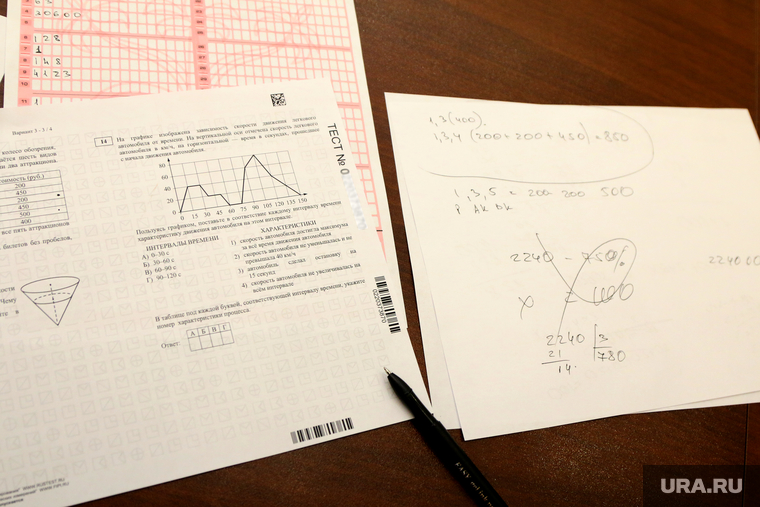 30600
128
1
148
4123
1
Вариант
колесо обозрения,
шесть видов
два аттракциона
(руб.)
200
450
200
450
500
400
все пять аттракционов
билетов без пробелов.
Чему
в
14
На графике изображена зависимость скорости движения легкового
автомобиля от времени. На вертикальной оси отмечена скорость легкового
автомобиля в км/ч, на горизонтальной — время в секундах, прошедшее
с начала движения автомобиля.
80
60
40
20
0 15 30 45 60 75 90 105 120 135 150
Пользуясь графиком, поставьте в соответствие каждому интервалу времени
характеристику движения автомобиля на этом интервале.
ИНТЕРВАЛЫ ВРЕМЕНИ
А) 0–30 с
Б) 30–60 с
В) 60–90 с
Г) 90–120 с
ХАРАКТЕРИСТИКИ
1) скорость автомобиля достигла максимума
за всё время движения автомобиля
2) скорость автомобиля не уменьшалась и не
превышала 40 км/ч
3) автомобиль сделал остановку на
15 секунд
4) скорость автомобиля не увеличивалась на
всём интервале
В таблице под каждой буквой, соответствующей интервалу времени, укажите
номер характеристики процесса.
Ответ:
А Б В Г
ТЕСТ №
1,3 (400).
1,3,4 (200+200+450) = 850
1,3,5 = 200 200 500
2240 –
22400
X
2240 3
21 780
14.
URA.RU